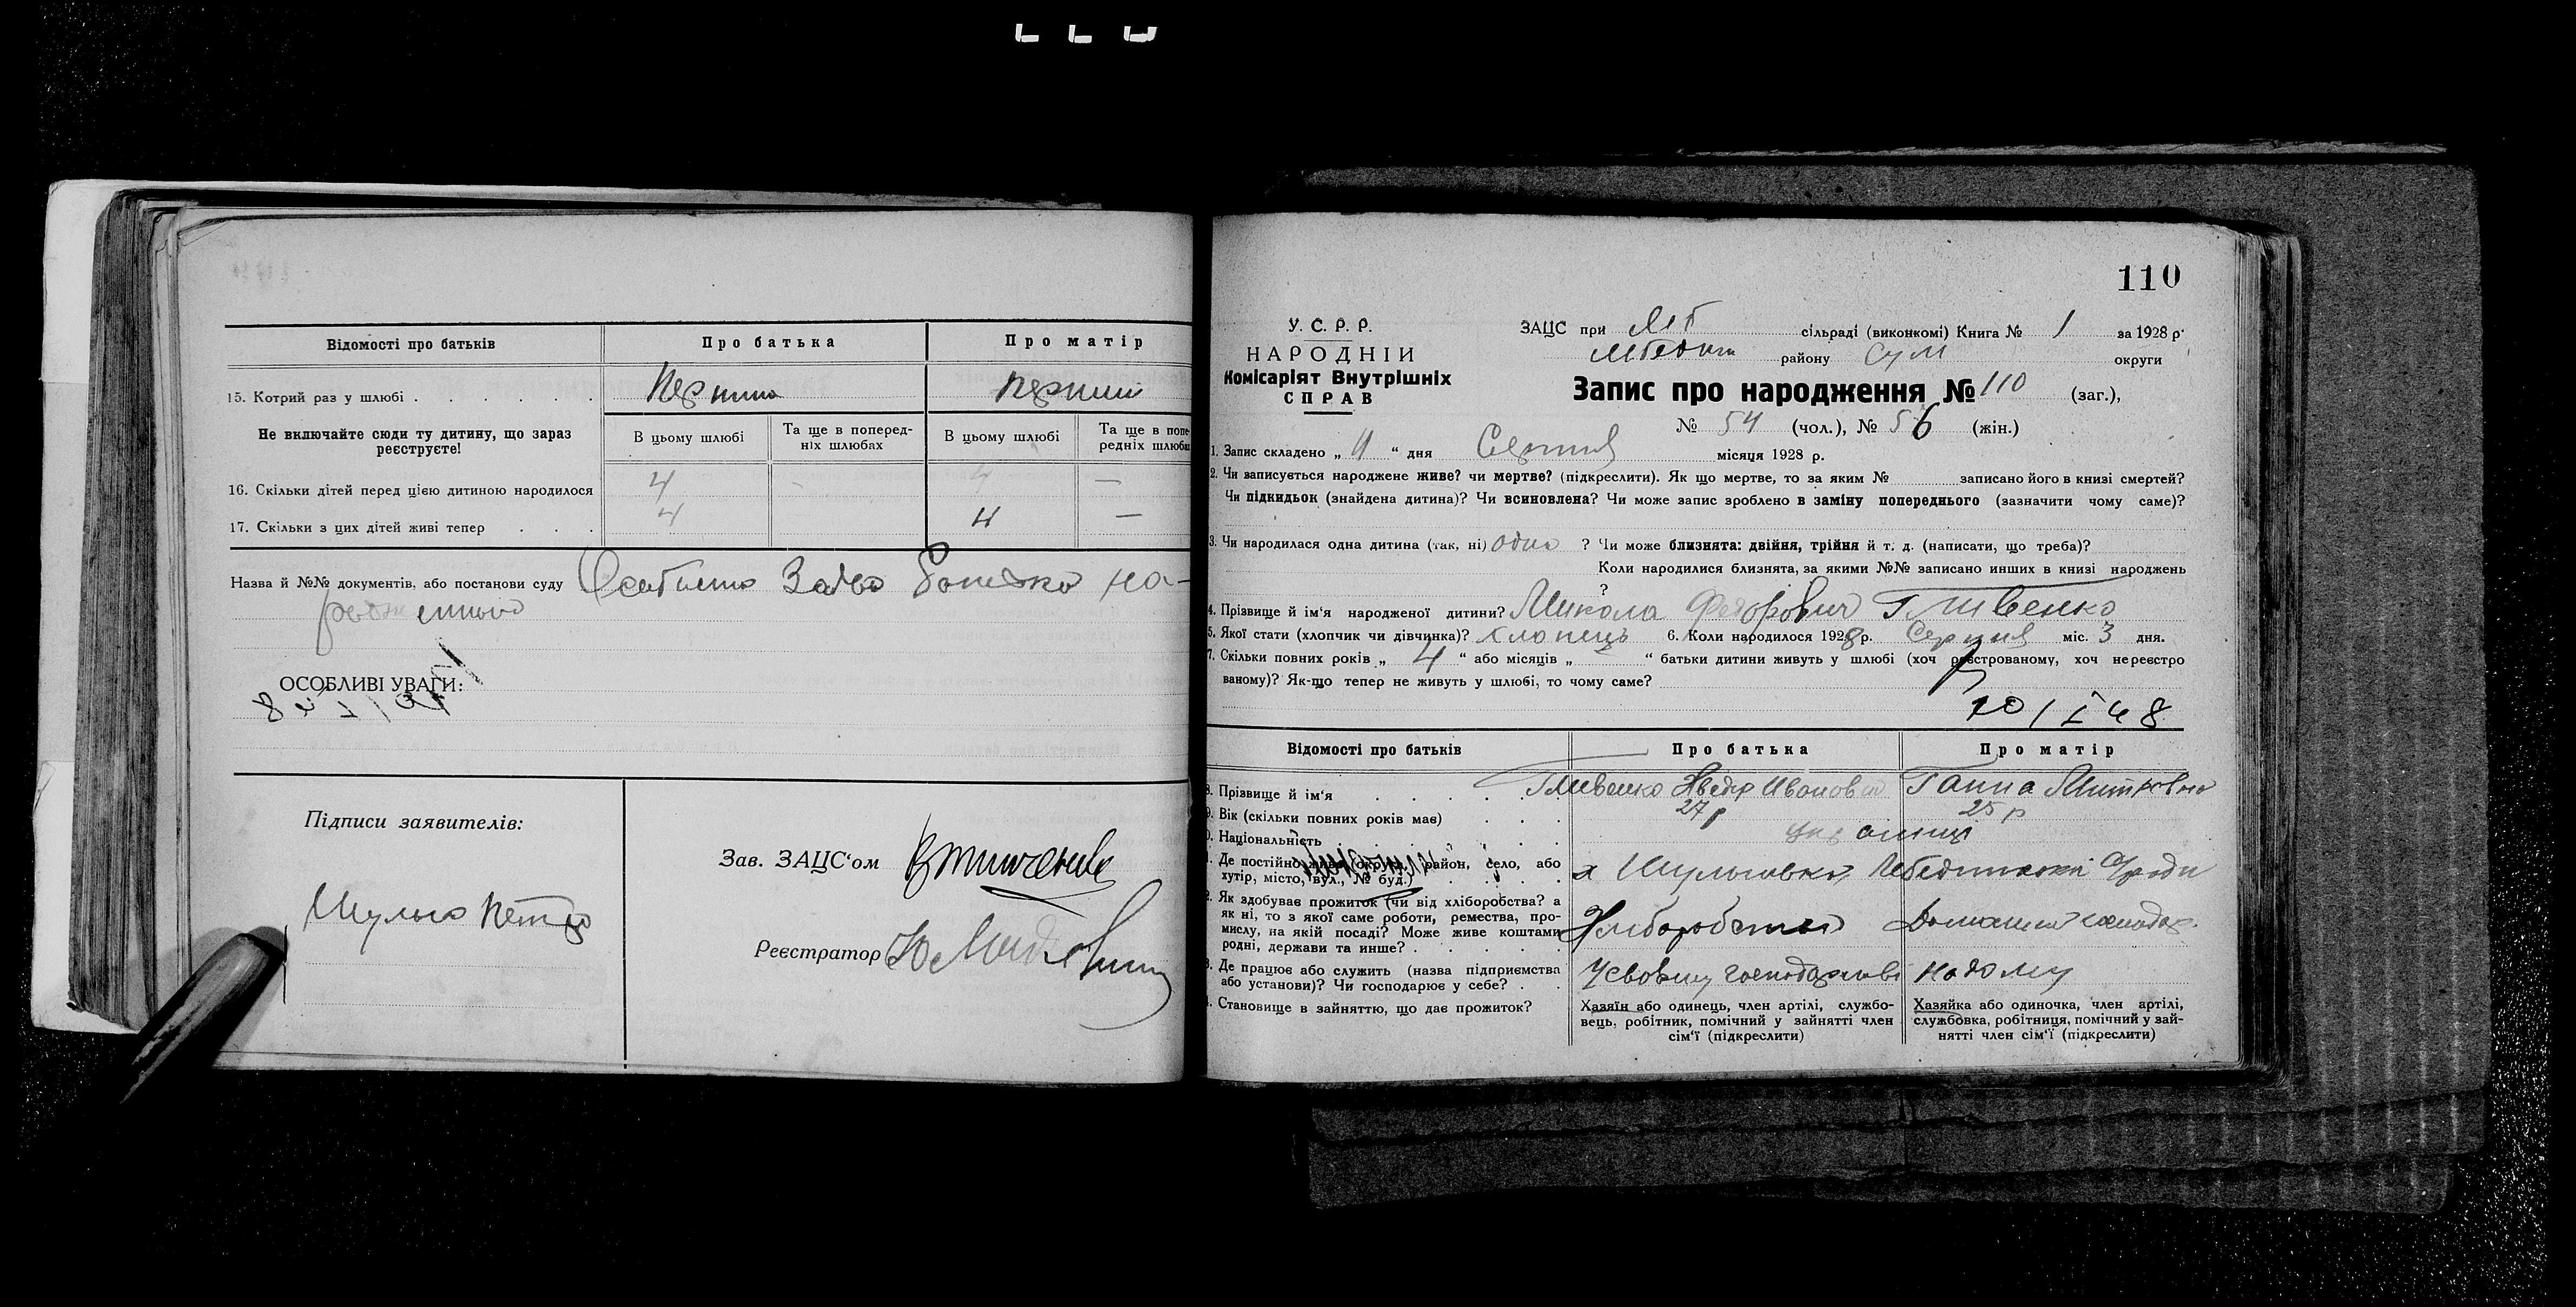 Відомості про батьків
Про батька
Про матір
15. Котрий раз у шлюбі
Перший
Перший
Не включайте сюди ту дитину, що зараз реєструєте!
В цьому шлюбі
Та ще в поперед-
ніх шлюбах
В цьому шлюбі
Та ще в попе
редніх шлюбах
16. Скільки дітей перед цією дитиною народилося
4
-
4
—
17. Скільки з цих дітей живі тепер
4
4
—
Назва й №№ документів, або постанови суду
ОСОБЛИВІ УВАГИ:
Підписи заявителів:
Шульга Петро
Зав. ЗАЦС'ом
Реєстратор
110
У. С. Р. Р.
НАРОДНІЙ
Комісаріят Внутрішніх
СПРАВ
ЗАЦС при Леб сільраді (виконкомі) Книга № 1 за 1928 р.
Лебедин району Сум округи
Запис про народження № 110 (заг.),
№ 54 (чол.), № 56 (жін.)
1. Запис складено „ 4 “ дня Серпня місяця 1928 р.
2. Чи записується народжене живе? чи мертве? (підкреслити). Як що мертве, то за яким № записано його в книзі смертей?
Чи підкидьок (знайдена дитина)? Чи всиновлена? Чи може запис зроблено в заміну попереднього (зазначити чому саме)?
3. Чи народилася одна дитина (так, ні) одна ? Чи може близнята: двійня, трійня й т. д. (написати, що треба)?
Коли народилися близнята, за якими №№ записано инших в книзі народжень
?
4. Прізвище й ім'я народженої дитини? Микола Федорович Гливенко
5. Якої стати (хлопчик чи дівчинка)? хлопець 6. Коли народилося 1928 р. Серпня міс. 3 дня.
7. Скільки повних років „ 4 “ або місяців „ “ батьки дитини живуть у шлюбі (хоч реєстрованому, хоч нереєстро
ваному)? Як-що тепер не живуть у шлюбі, то чому саме?
10/I 48
Відомості про батьків
Про батька
Про матір
8. Прізвище й ім'я
Гливенко Хведір Иванович
Ганна Митровна
9. Вік (скільки повних років має)
27 р
25 р
0. Національність
українці
1. Де постійно живе (округа, район, село, або
хутір, місто, вул., № буд.)
х Шульговка, Лебединської
2. Як здобуває прожиток (чи від хліборобства? а
як ні, то з якої саме роботи, ремества, про-
мислу, на якій посаді? Може живе коштами
родні, держави та инше?
Хліборобство
Домашня господар.
3. Де працює або служить (назва підприємства
або установи)? Чи господарює у себе?
У свойому господарстві
На дому
4. Становище в зайняттю, що дає прожиток?
Хазяїн або одинець, член артілі, службо-
вець, робітник, помічний у зайнятті член
сім'ї (підкреслити)
Хазяйка або одиночка, член артілі,
службовка, робітниця, помічний у зай-
нятті член сім'ї (підкреслити)